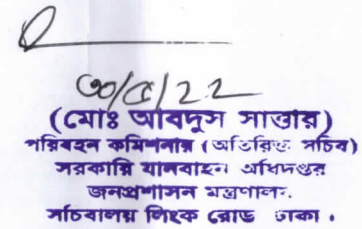 ৩০/৫/২২
(মোঃ আবদুস সাত্তার)
পরিবহন কমিশনার (অতিরিক্ত সচিব)
সরকারি যানবাহন অধিদপ্তর
জনপ্রশাসন মন্ত্রণালয়.
সচিবালয় লিংক রোড ঢাকা ।